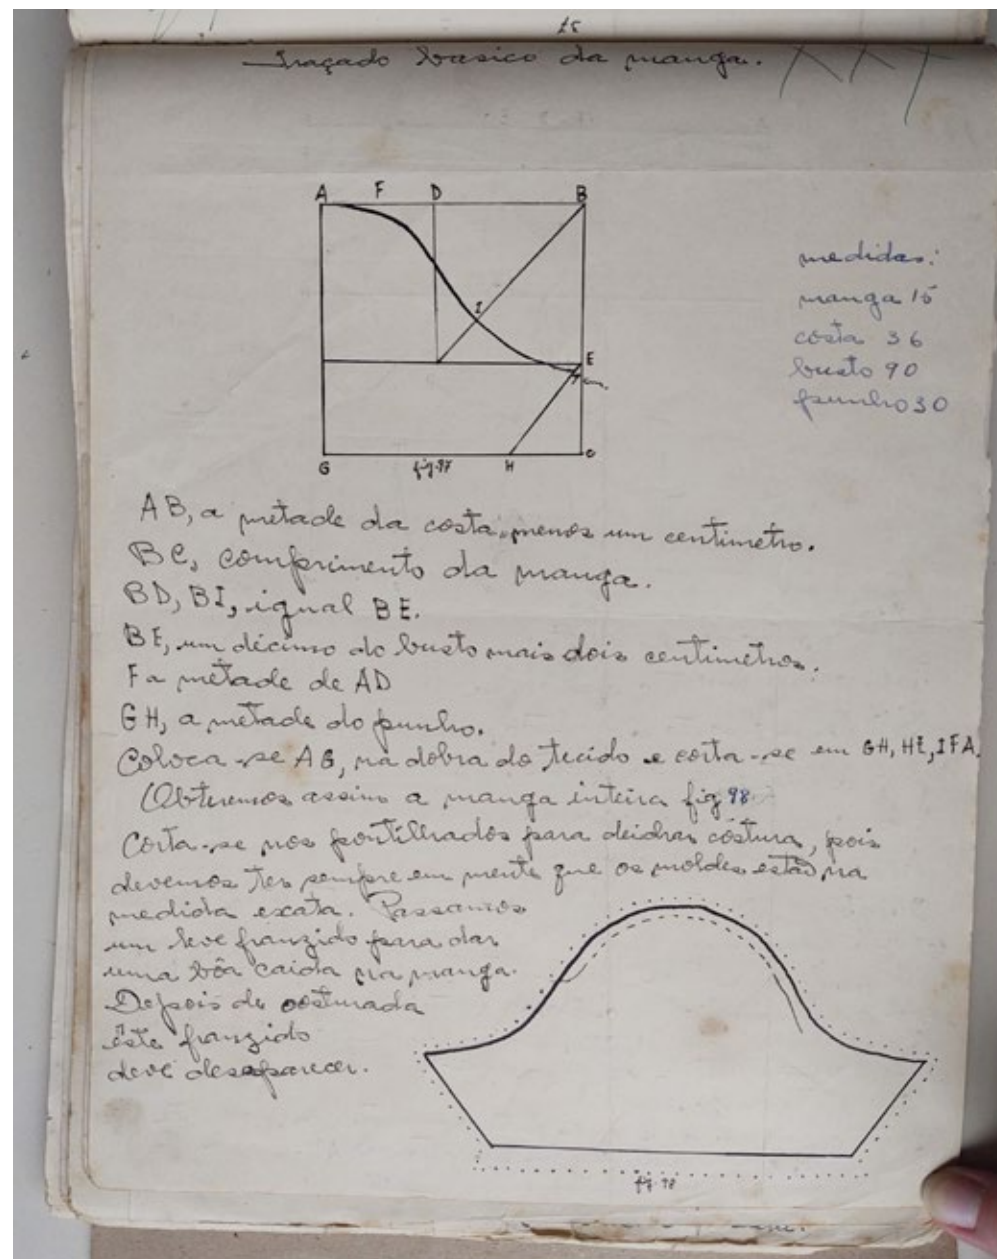 Traçado basico da manga.
A F D B
I
E
G fig. 97 H C
medidas:
manga 15
costa 36
busto 90
punho 30
AB, a metade da costa, menos um centimetro.
BC, comprimento da manga.
BD, BI, igual BE.
BE, um décimo do busto mais dois centimetros.
F a metade de AD
GH, a metade do punho.
Coloca-se AG, na dobra do tecido e corta-se em GH, HE, IFA.
Obteremos assim a manga inteira fig 98
Corta-se nos pontilhados para deidrar costura, pois
devemos ter sempre em mente que os moldes estão na
medida exata. Passamos
um leve franzido para dar
uma bôa caida na manga.
Depois de costurada
êste franzido
deve desaparecer.
fig. 98